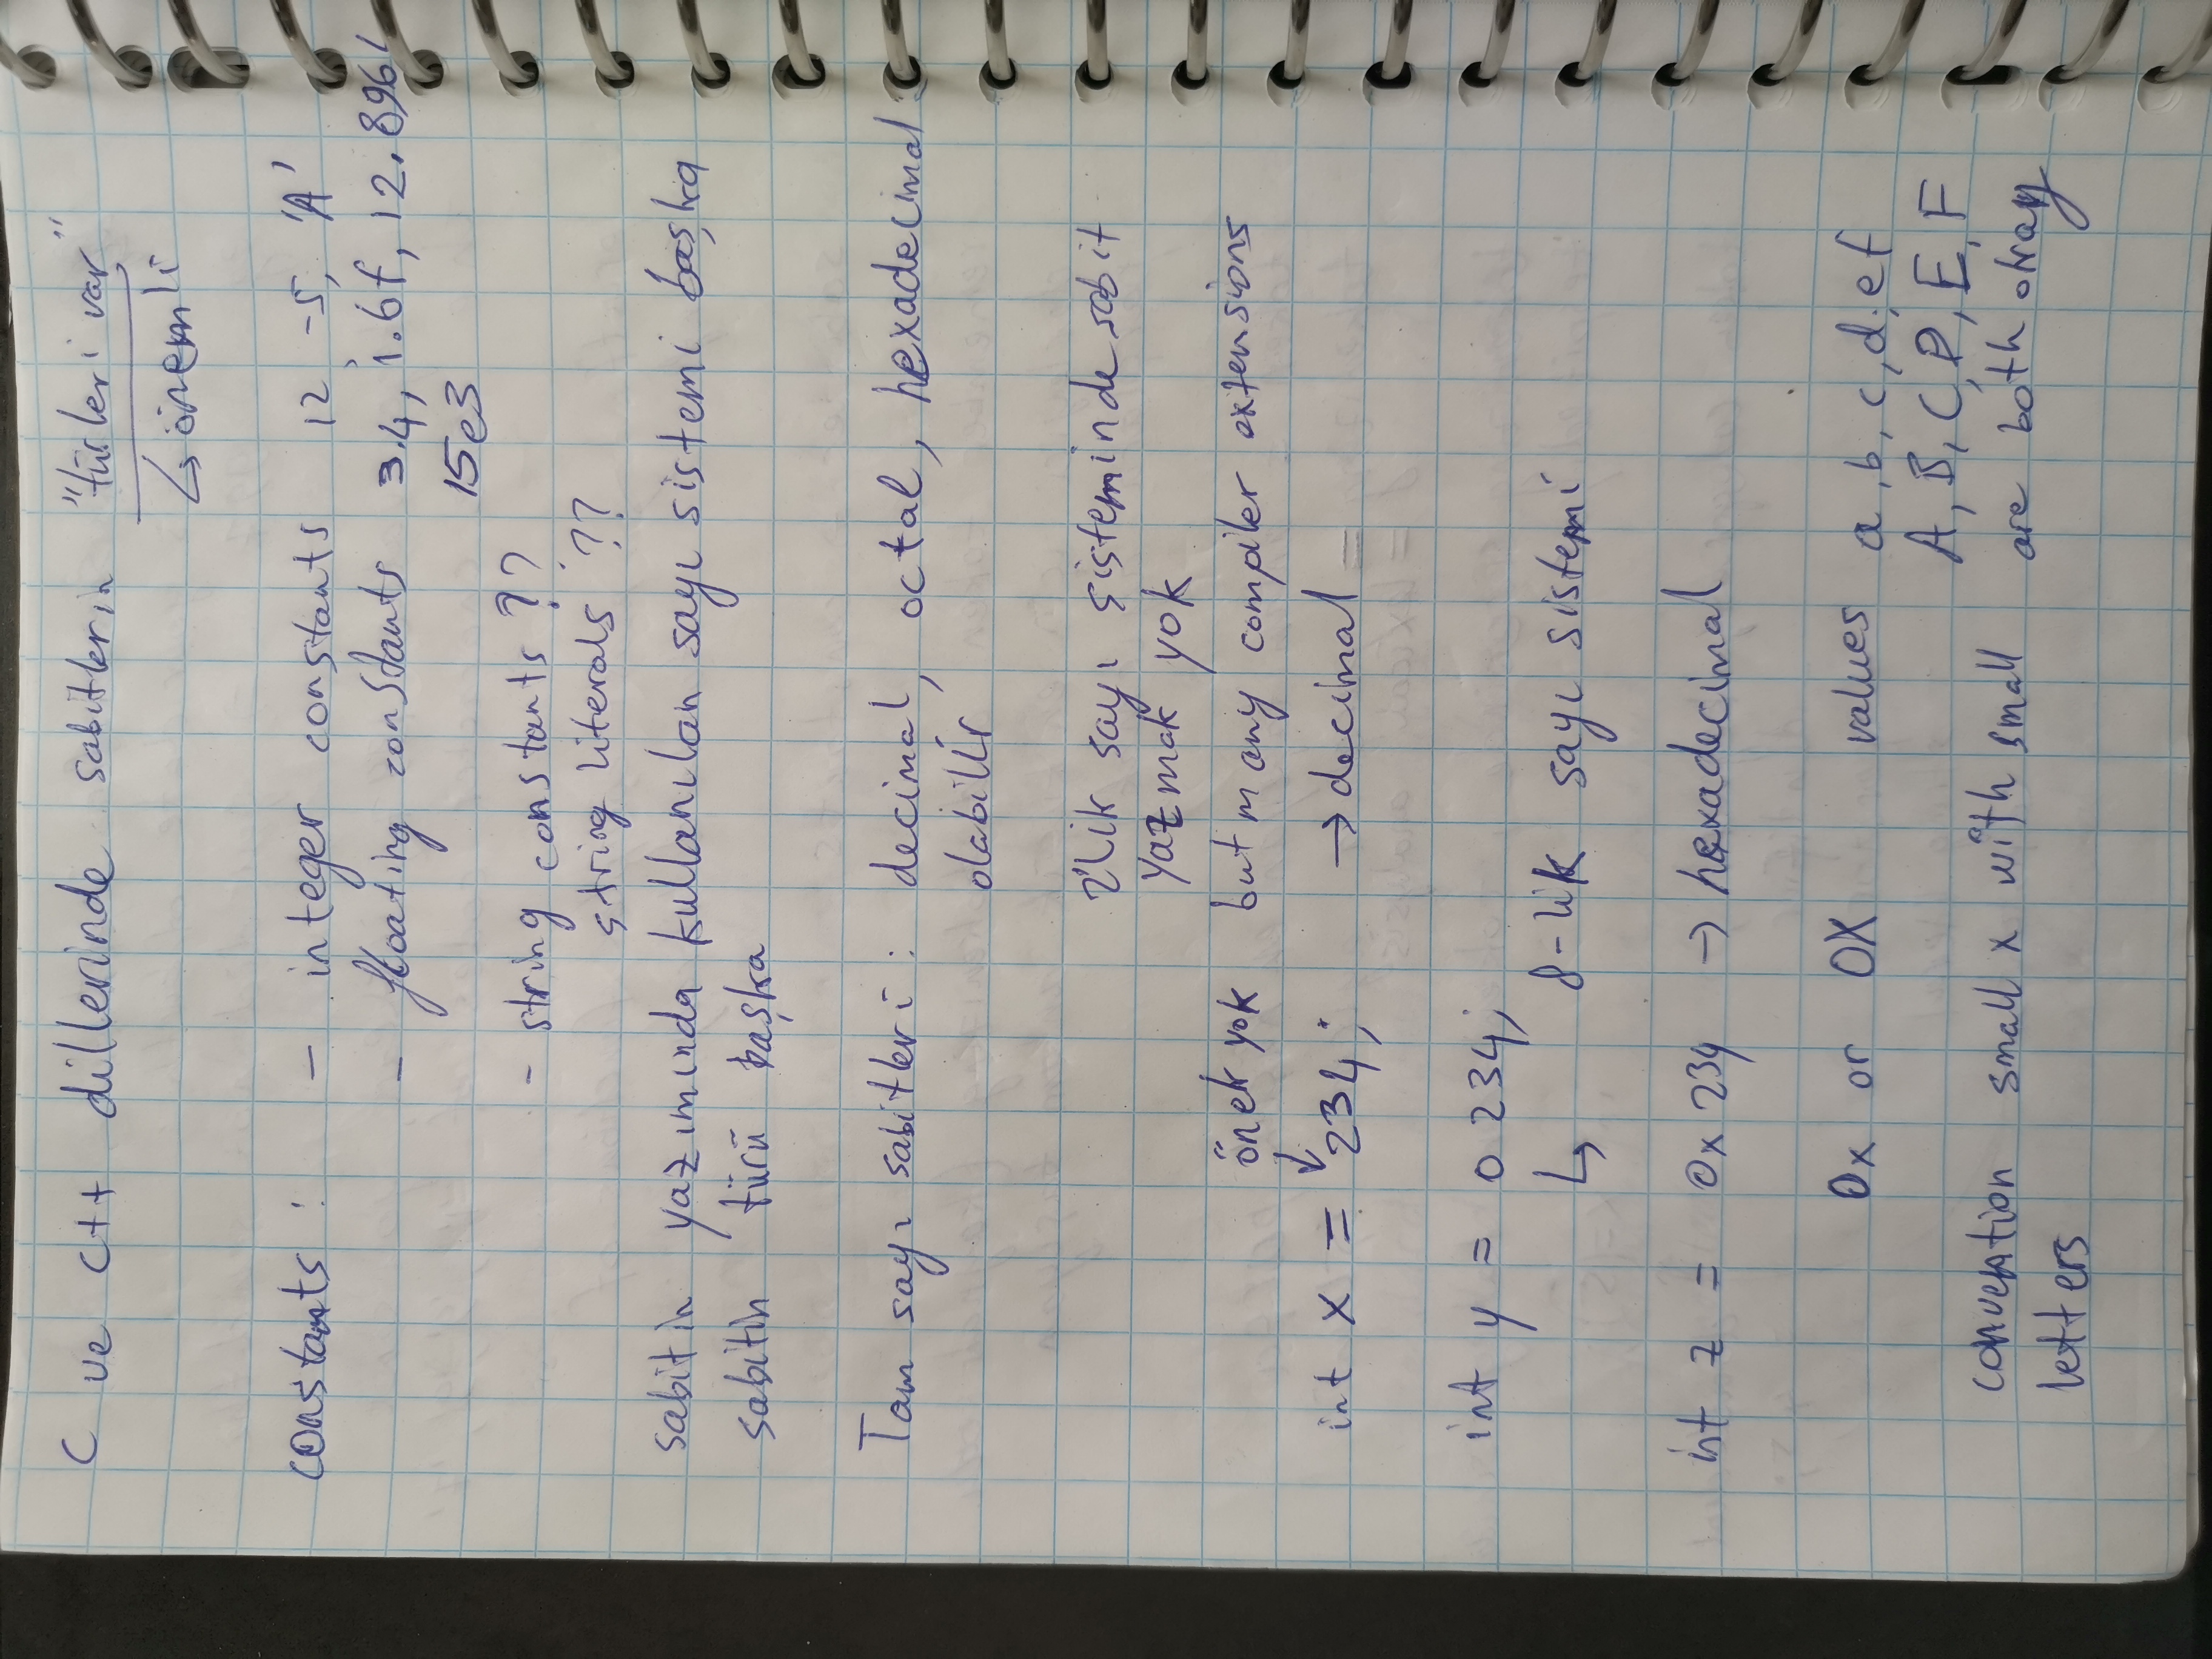 C ve C++ dillerinde sabitlerin "türleri var"
↳ önemli
constants : - integer constants 12, -5, 'A'
- floating constants 3.4, 1.6f, 12.896l
15e3
- string constants ??
string literals ??
sabitin yazımında kullanılan sayı sistemi başka
sabitin türü başka
Tam sayı sabitleri : decimal, octal, hexadecimal
olabilir
2'lik sayı sisteminde sabit
yazmak yok
önek yok but many compiler extensions
↓
int x = 234; → decimal
int y = 0234;
↳ 8-lik sayı sistemi
int z = 0x234 → hexadecimal
0x or 0X values a, b, c, d, e f
A, B, C, D, E, F
convention small x with small are both okay
letters